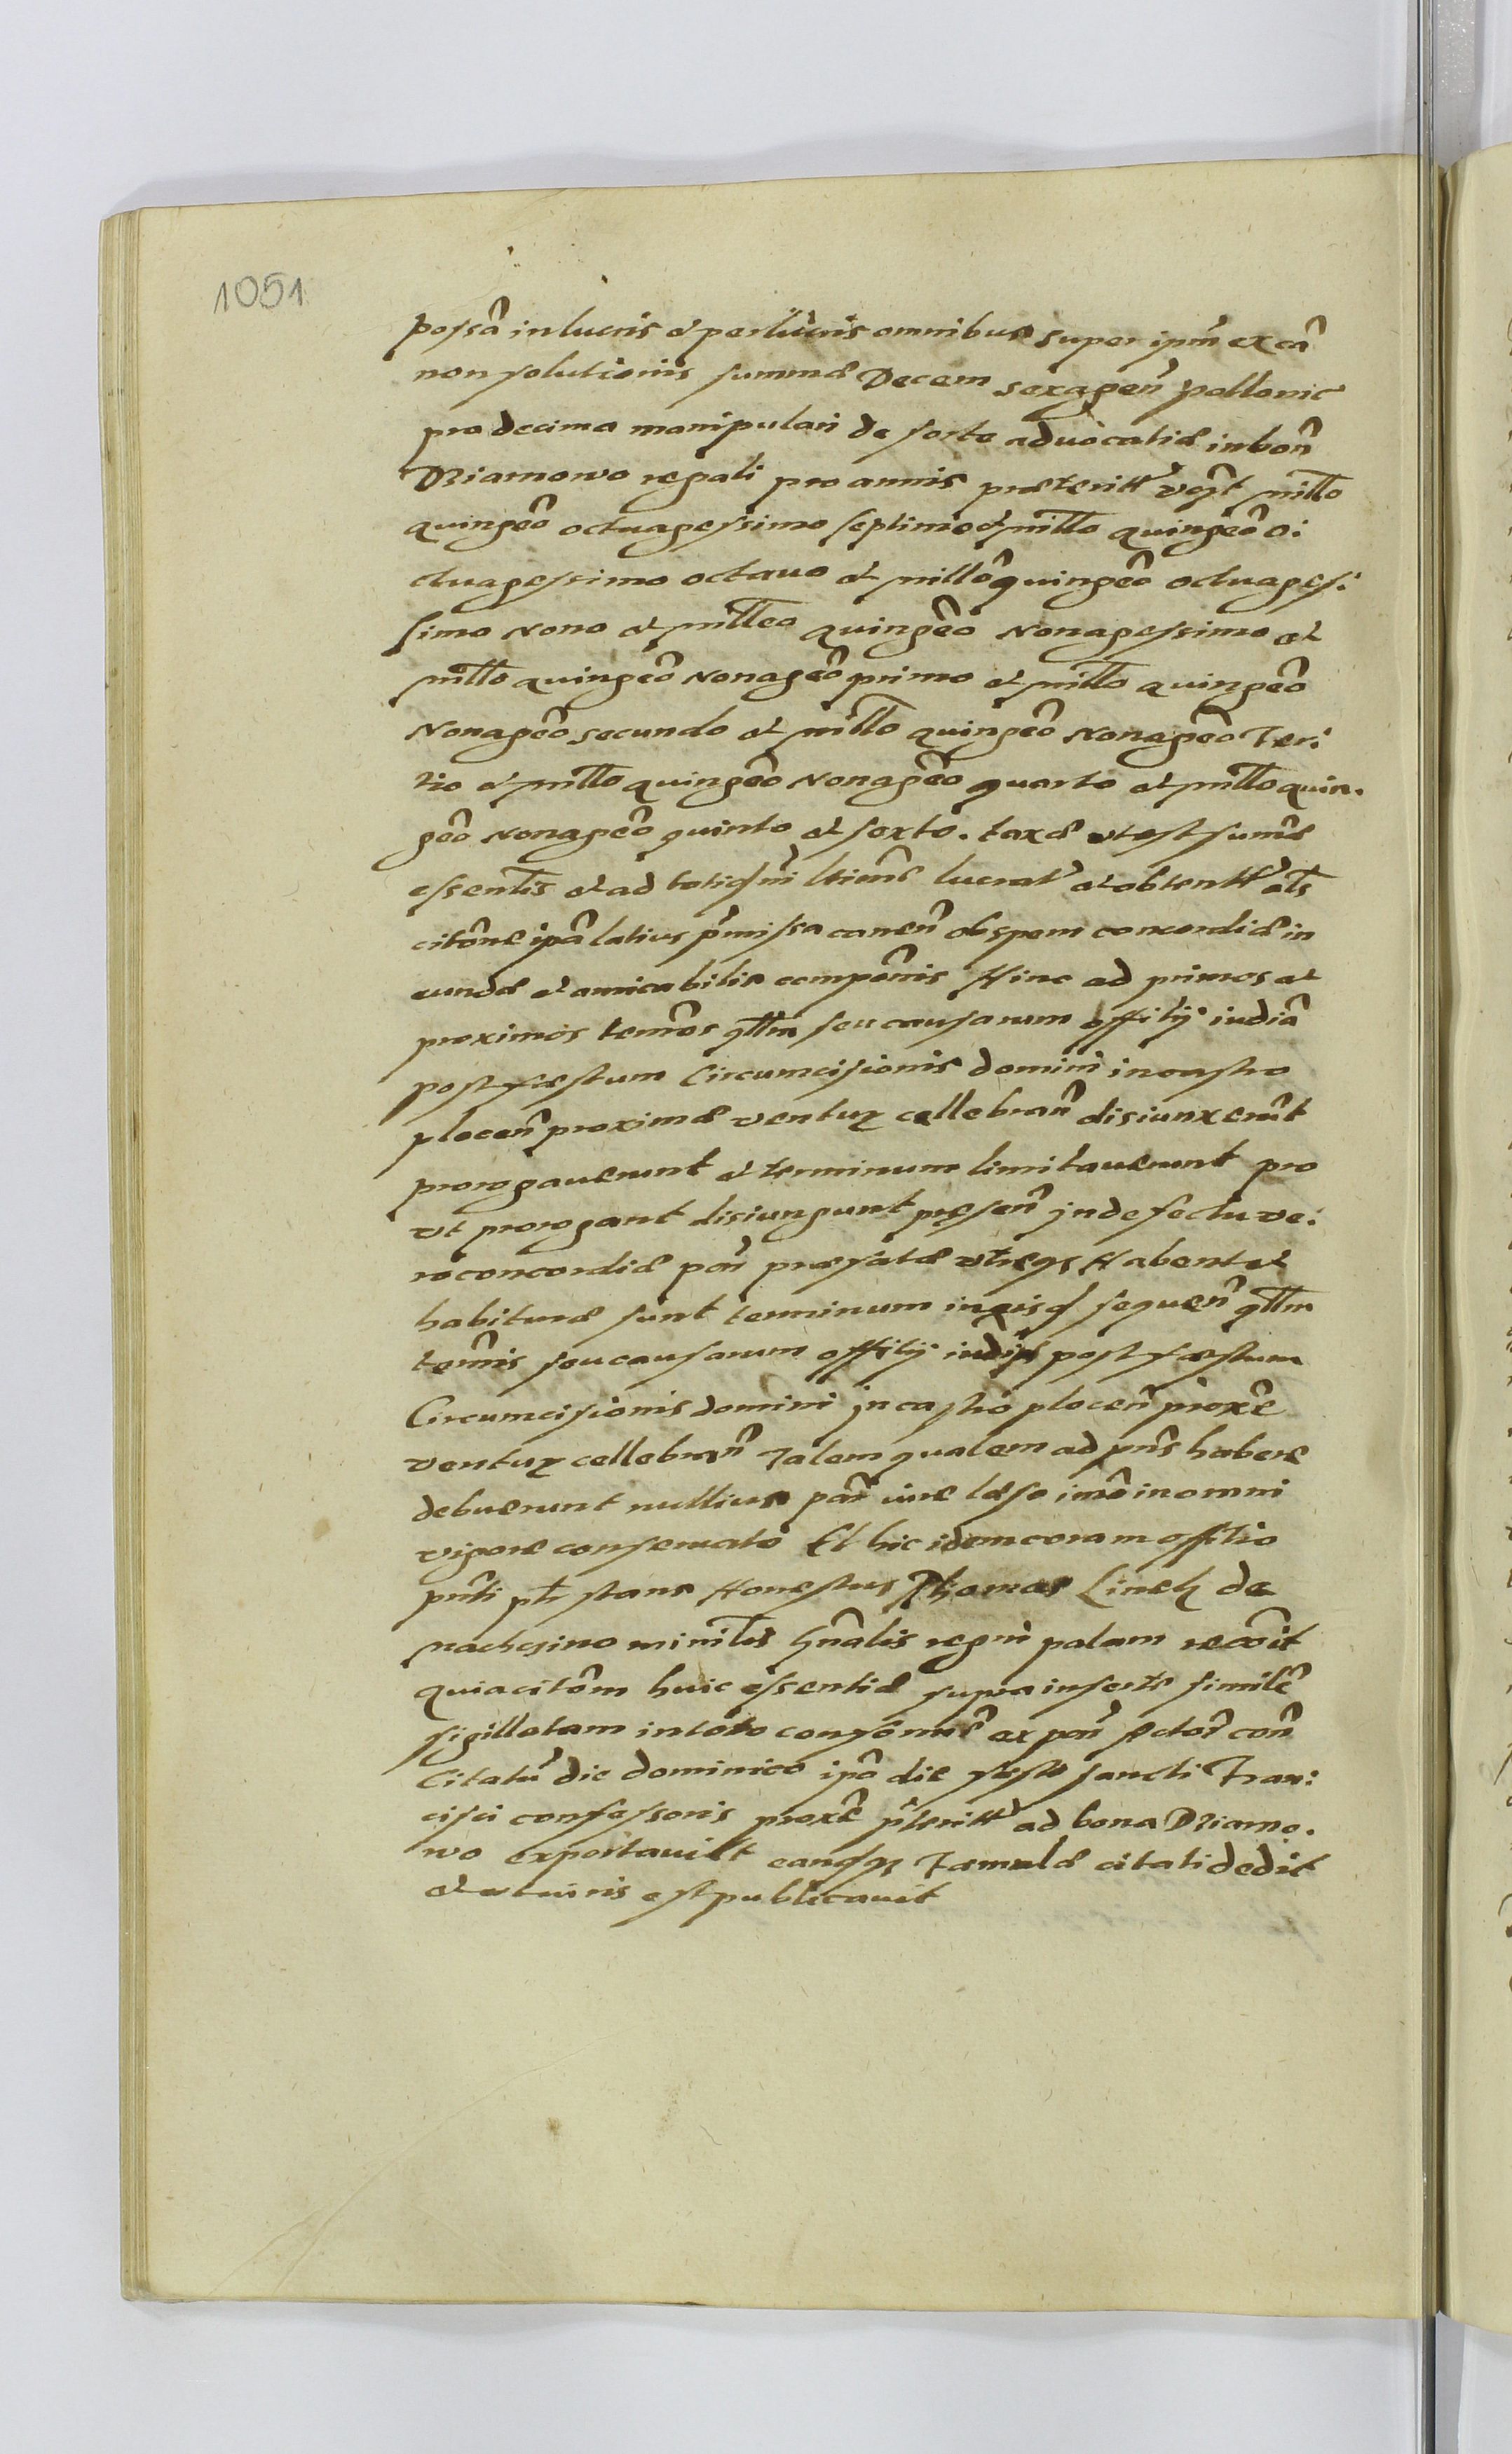 1051
possā in lucris et perlucris omnibus super ipm̄ ex cā
non solutionis summæ Decem sexagen̄ pollonic
pro decima manipulari de sorte advocatiæ in bon̄
Dziarnowo regali pro annis præteritt̄ millo
quingēo octuagessimo septimo et millo quingēo o:
ctuagessimo octauo et millō quingēo octuages:
simo Nono et milleo quingēo Nonagessimo et
millo quingēo Nonagēo primo et millo quingēo
Nonagēo secundo et millo quingēo Nonagēo Ter:
tio et millo quingēo Nonagēo quarto et millo quin.
gēo Nonagēo quinto et sexto. taxæ ut est summæ
essentis et ad lucrat et obtentt
citōne ipā latius p̄missa canen̄ ob spem concordiæ in
eundæ et amicabilis compōnis Hinc ad primos et
proximos termōs qllm seu causarum offitij iudiā
post fæstum Circumcisionis domini in castro
plocen̄ proximæ ventuꝝ cellebran̄ disiunxerūt
prorogauerunt et terminum limitauerunt pro
ut prorogant disiungunt præsen̄ in defectu ve:
ro concordiæ par̄ præfatæ utreqꝫ Habent et
habituræ sunt terminum in eisd sequen̄ qllm
termīs seu causarum offitij iudi post fæstum
Circumcisionis domini in castro plocen̄ proxē
ventuꝝ cellebran̄ Talem qualem ad pn̄s habere
debuerunt nullius par̄ iure læso imō in omni
vigore conseruato Et hic idem coram offitio
pn̄ti ptr̄ stans Honestus Thomas Linek de
Machczino minitls Gn̄alis regni palam recōit
quia citōm huic essentiæ supra insertæ similē
sigillatam in toto consōmē ex par̄ Actor̄ con̄
Citatū die dominico ipō die festo sancti Fran:
cisci confessoris proxē p̄teritt ad bona Dziarno.
wo exportauit eandqꝫ Famulæ citati dedit
et a tuinis est publicauit